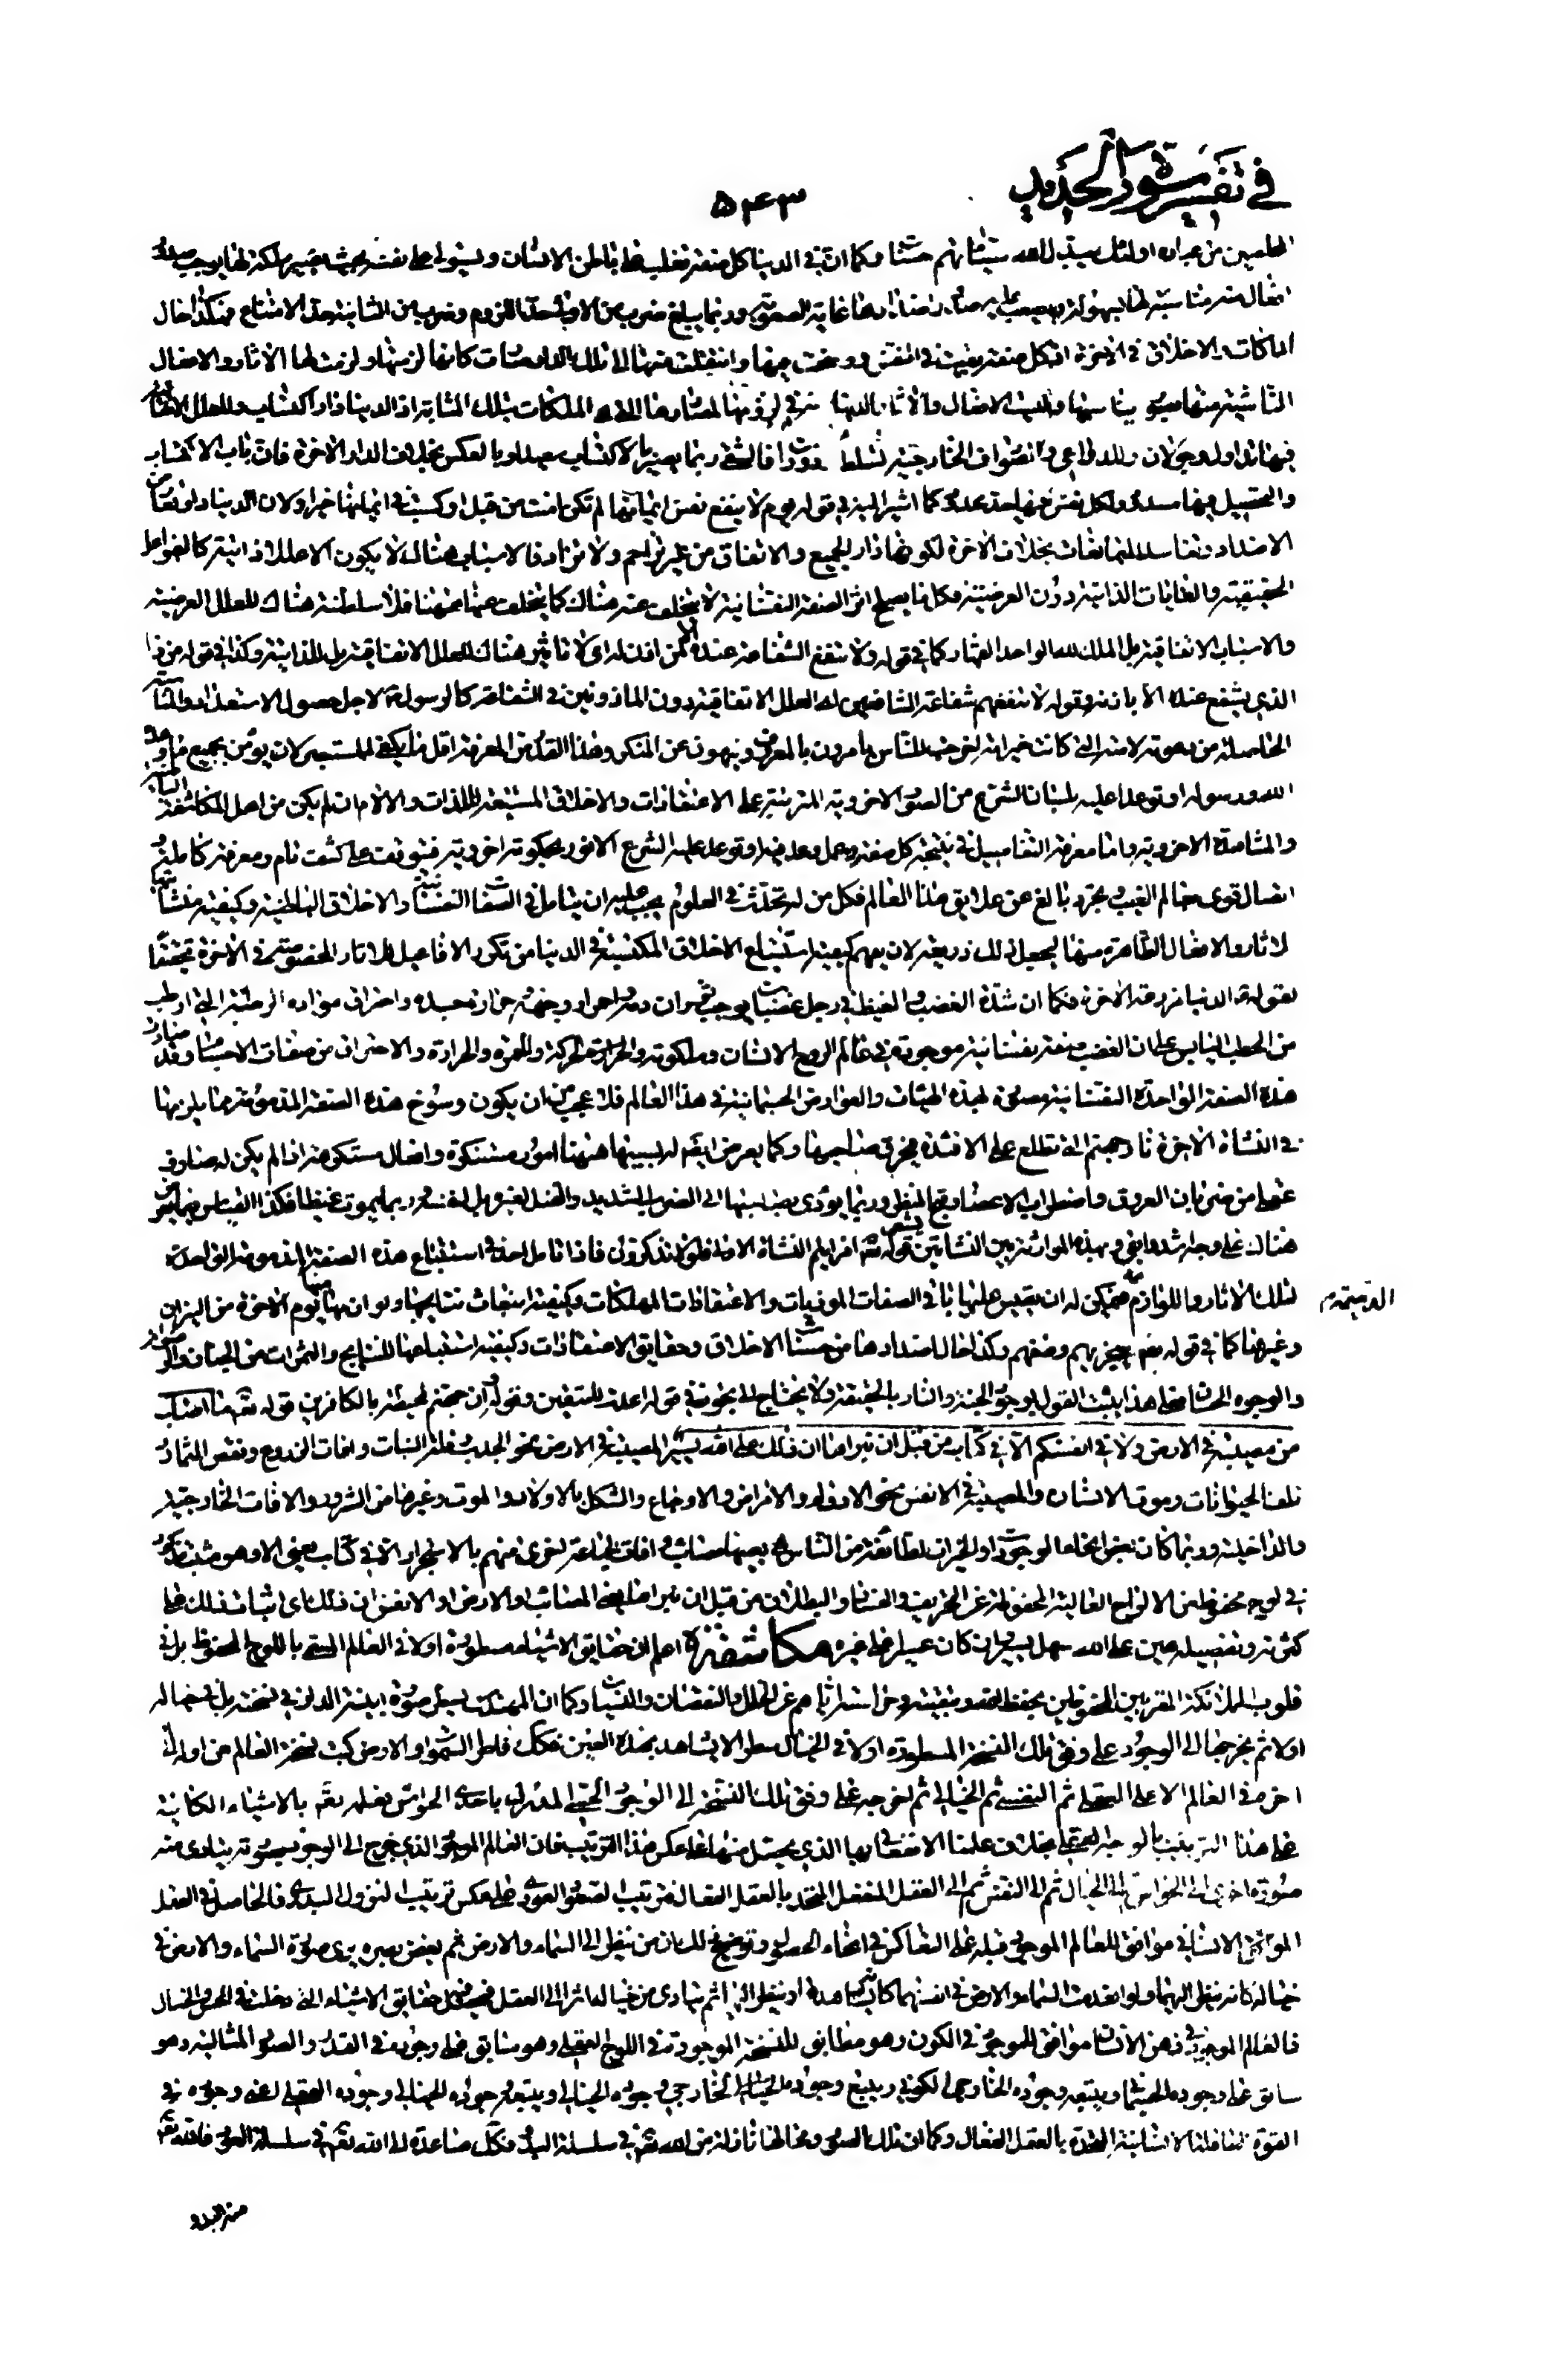 في تفسير سورة الحديد
٥٤٣
المخلصين من عباده اولئك يبدل الله سيئاتهم حسنات وكما ان في الدنيا كل صفة تغلب على باطن الانسان ويستولي على نفسه بحيث يصير ملكة لها يوجب صدور
افعال منه مناسبة لها بسهولة يصعب عليه غاية الصعوبة وربما يبلغ ضرب من الاول حد اللزوم وضرب من الثاني حد الامتناع فهكذا حال
الملكات والاخلاق في الاخرة اذ كل صفة بقيت في النفس ورسخت فيها وانتقلت منها الى تلك الدار صارت كانها لزمتها ولزمت لها الاثار والافعال
الناشية منها بصور يناسبها وليست الافعال والاثار في لزومها لمصادرها التي هي الملكات بتلك المثابة اذ الدنيا دار اكتساب وللعلل الاتفاقية
فيها تداول وجولان وللدواعي والصوارف الخارجية تسلط فالشقي ربما يصير بالاكتساب سعيدا وبالعكس بخلاف الدار الاخرة فان باب الاكتساب
والتحصيل فيها مسدود ولكل نفس فيها حد محدود كما اشير اليه في قوله يوم لا ينفع نفسا ايمانها لم تكن امنت من قبل او كسبت في ايمانها خيرا ولان الدنيا دار تعارض
الاضداد وتفاسد المتمانعات بخلاف الاخرة لكونها دار الجمع والاتفاق من غير تزاحم ولا تزاد فالاسباب هناك لا يكون الا عللا ذاتية كالفواعل
الحقيقية والغايات الذاتية دون العرضية فكل ما يصلح اثرا لصفة النفسانية لا يتخلف عنه هناك كما يتخلف عنها ههنا فلا سلطنة هناك للعلل العرضية
والاسباب الاتفاقية بل الملك لله الواحد القهار كما في قوله ولا تنفع الشفاعة عنده الا لمن اذن له اي لا تاثير هناك للعلل الاتفاقية بل للذاتية وكذا في قوله من ذا
الذي يشفع عنده الا باذنه وقوله لا تنفعهم شفاعة الشافعين اي العلل الاتفاقية دون الماذونين في الشفاعة كالرسول ص لاجل حصول الاستعداد والمناسبة
الحاصلة من دعوته لامته التي كانت خير امة اخرجت للناس يامرون بالمعروف وينهون عن المنكر وهذا القدر من المعرفة اقل ما يكفي للمستبصر لان يؤمن بجميع ما وعد
الله ورسوله او توعدا عليه بلسان الشرع من الصور الاخروية المترتبة على الاعتقادات والاخلاق المستتبعة للذات والالام ان لم يكن من اهل المكاشفة
والمشاهدة الاخروية واما معرفة التفاصيل في نتيجة كل صفة وعمل وعد فيه او توعد عليه الشرع الانور بمثوبة اخروية فيتوقف على كشف تام ومعرفة كاملة و
اتصال قوي بعالم الغيب وتجرد بالغ عن علائق هذا العالم فكل من له تحدث في العلوم يجب عليه ان يتامل في الصفات النفسانية والاخلاق الباطنية وكيفية منشايتها
للاثار والافعال الظاهرة منها ليجعل ذلك ذريعة لان يفهم كيفية استتباع الاخلاق المكتسبة في الدنيا من تكرر الافاعيل للاثار المخصوصة في الاخرة تحقيقا
لقوله ص الدنيا مزرعة الاخرة فكما ان شدة الغضب والغيظ في رجل غضبان يوجب ثوران دمه واحمرار وجهه وحرارة جسده واحتراق مواده الرطبة التي ارطب
من الحطب اليابس على ان الغضب صفة نفسانية موجودة في عالم الروح الانسان وملكوته والحركة والحمرة والحرارة والاحتراق من صفات الاجسام وقد صارت
هذه الصفة الواحدة النفسانية مصدرة لهذه الهيئات والعوارض الجسمانية في هذا العالم فلا عجب من ان يكون رسوخ هذه الصفة المذمومة مما يلزمها
في النشاة الاخرة نار جهنم التي تطلع على الافئدة يحرق صاحبها وكما يعرض ايضا لسببها ههنا امور مستنكرة وافعال مستكرهة اذا لم يكن له صارف
عقلي من ضربان العروق واضطراب الاعضاء وقبح المنظر وربما يؤدي بصاحبها الى الضرب الشديد والقتل لغيره بل لنفسه وربما يموت غيظا فكذا القياس فيما يترتب
هناك على وجه اشد وابقى وبهذه الموازنة بين النشاتين يتحقق قوله تعالى افلم يعلم النشاة الاولى فلولا تذكرون فاذا تامل احد في استتباع هذه الصفة المذمومة الواحدة
لتلك الاثار واللوازم الدنيوية فيمكن له ان يقيس عليها باقي الصفات الموذيات والاعتقادات المهلكات وكيفية انبعاث نتايجها ولوازمها يوم الاخرة من النيران
وغيرها كما في قوله تعالى سيجزيهم وصفهم وكذا حال اضدادها من حسنات الاخلاق وحقايق الاعتقادات وكيفية استتباعها للنتايج والثمرات من الجنان والرضوان
والوجوه الحسان فعلى هذا يثبت القول بوجود الجنة والنار بالحقيقة ولا يحتاج الى تجوز في قوله اعدت للمتقين وقوله وان جهنم لمحيطة بالكافرين قوله تعالى ما اصاب
من مصيبة في الارض ولا في انفسكم الا في كتاب من قبل ان نبراها ان ذلك على الله يسير المصيبة في الارض نحو الجدب وقلة النبات وافات الزروع ونقص الثمار و
تلف الحيوانات وموت الانسان والمصيبة في الانفس نحو الادواء والامراض والاوجاع والثكل بالاولاد والموت وغيرها من الشرور والافات الخارجية
والداخلية وربما كان بعض انحاء الوجود او الخيرات لطائفة من الناس بعينها مصائب وافات لجماعة اخرى منهم بالانجرار الا في كتاب يعني الا وهو مثبت مذكور
في لوح محفوظ من الالواح العالية المحفوظة عن التحريف والفساد والبطلان من قبل ان نبراها يعني المصائب او الارض او الانفس ان ذلك اي اثبات ذلك على
كثرته وتفصيله هين على الله سهل يسير وان كان عسيرا على غيره مكاشفة اعلم ان حقايق الاشياء مسطورة اولا في العالم المسمى باللوح المحفوظ بل في
قلوب الملائكة المقربين المحفوظين بحفظ الله وتبقيته وحراسته اياهم عن الخلل والنقصان والنسيان وكما ان المهندس يسطر صورة ابنية الدار في نسخة بل في خياله
اولا ثم يخرجها الى الوجود على وفق تلك النسخة المسطورة اولا في الخيال سطرا لا يشاهد بهذه العين فكذلك فاطر السموات والارض كتب نسخة العالم من اوله الى
اخره في العالم الاعلى العقلي ثم النفسي ثم الخيالي ثم اخرجه على وفق تلك النسخة الى الوجود الحسي المدرك باحدى الحواس فعلمه تعالى بالاشياء الكائنة
على هذا الترتيب بالوجه العقلي بخلاف علمنا الانفعالي بها الذي يحصل منها على عكس هذا الترتيب فان العالم الموجود الذي خرج الى الوجود بصورته يتادى منه
صورة اخرى الى الحواس ثم الى الخيال ثم الى النفس ثم الى العقل المنفعل المتحد بالعقل الفعال فترتيب الصعود العودي على عكس ترتيب النزول البدوي فالحاصل في العقل
الانساني موافق للعالم الموجود قبله على التعاكس في انحاء الحصول وتوضيح ذلك ان من ينظر الى السماء والارض ثم يغض بصره يرى صورة السماء والارض في
خياله كانه ينظر اليهما ولو انعدمت السماء والارض في انفسهما كانه يشاهدها او ينظر اليها ثم يتادى من خياله اثر الى العقل فيحصل حقايق الاشياء التي دخلت في الحس والخيال
فالعالم الموجود في ذهن الانسان موافق للموجود في الكون وهو مطابق للنسخة الموجودة في اللوح العقلي وهو سابق على وجوده في القدر والصور المثالية وهو
سابق على وجوده الجسماني ويتبعه وجوده الخارجي الكوني ويتبع وجوده الخارجي وجوده الخيالي ويتبع وجوده الخيالي وجوده العقلي اعني وجوده في
القوة العاقلة الانسانية المتحدة بالعقل الفعال وكما ان تلك الصور ومحالها نازلة من الله تعالى في سلسلة البدو فكل صاعدة الى الله تعالى في سلسلة العود فالله تعالى
منه البدو